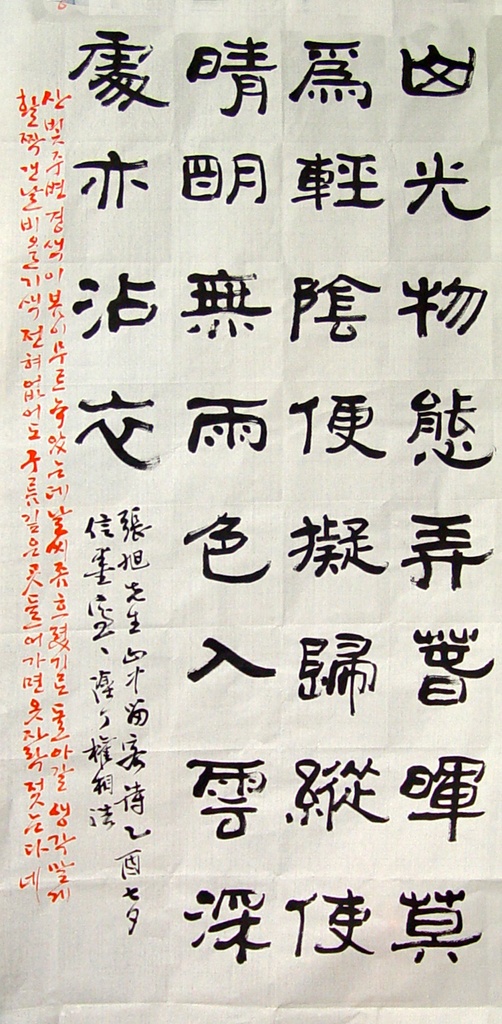 山光物態弄春暉莫
爲輕陰便擬歸縱使
晴明無雨色入雲深
處亦沾衣
張旭先生 山中留客詩 乙酉七夕
信墨 權相浩
산빛 주변 경색이 봄이 무르녹았는데 날씨 좀 흐렸기로 돌아갈 생각 말게
활짝 갠 날 비 올 기색 전혀 없어도 구름 깊은 곳 들어가면 옷자락 젖는다네